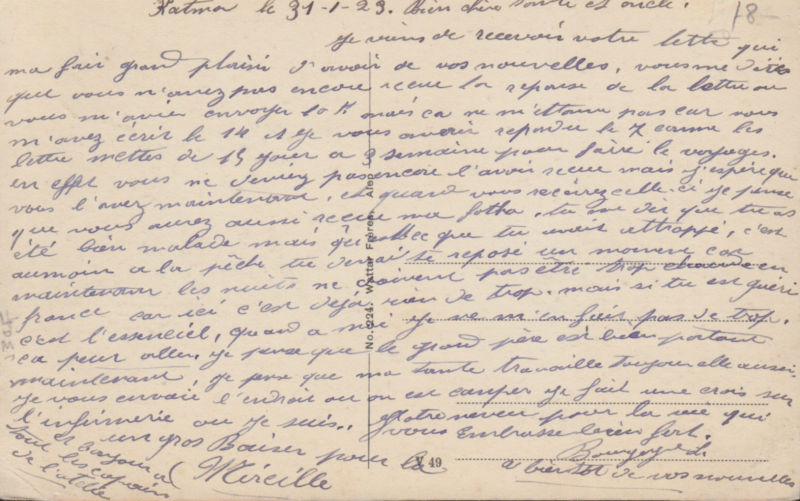 Katma le 31-1-23. Bien chère tante et oncle.
18
Je viens de recevoir votre lettre qui
ma fait grand plaisir d'avoir de vos nouvelles, vous me dites
que vous n'avez pas encore recue la reponse de la lettre que
vous m'aviez envoyer le 7 mais ça ne m'étonne pas car vous
m'avez écrit le 14 et je vous avais repondu le 7 comme les
lettre mettes de 15 jour a 3 semaine pour faire le voyages.
en effet vous ne deviez pas encore l'avoir recue mais j'espère que
vous l'avez maintenant, et quand vous recevrez celle-ci je pense
que vous aurez aussi recue ma fotho. tu me dit que tu as
été bien malade mais qu'est ce que tu avait attrappé, c'est
aumoin a la pêche tu devrai se reposé un moment car
maintenant les nuits ne doivent pas être trop chaude en
france car ici c'est deja rien de trop. mais si tu est guéri
c'est l'essenciel, quand a moi je ne m'en fait pas de trop,
ça peux aller. je pense que le grand père est bien portant
maintenant je pense que ma tante travaille toujour elle aussi.
je vous envoie l'endroit ou on est camper je fait une crois sur
l'infirmerie ou je suis. Votre neveu pour la vie qui
vous embrasse bien fort.
un gros Baiser pour la
Mireille
et bonjour a
tout les copains
de l'
a bientot de vos nouvelles
No. 224. Wattar Frères, Alep
V 49